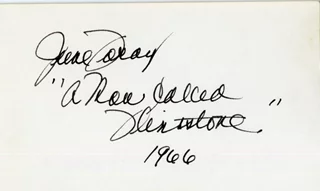 June Foray
"A Man Called
Flintstone."
1966